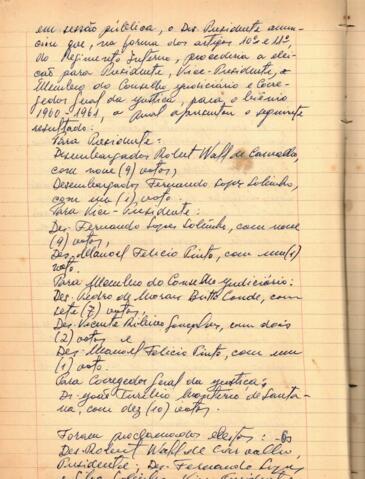 em sessão pública, o Des. Presidente anun-
ciou que, na forma dos artigos 10º e 11º,
do Regimento Interno, procederia a elei-
ção para Presidente, Vice-Presidente, e
Membro do Conselho Judiciário e Corre-
gedor Geral da Justiça, para o biênio
1960-1961, a qual apresentou o seguinte
resultado:
Para Presidente:
Desembargador Robert Wall de Carvalho,
com nove (9) votos,
Desembargador Fernando Lopes Sobrinho,
com um (1) voto.
Para Vice-Presidente:
Des. Fernando Lopes Sobrinho, com nove
(9) votos,
Des. Manoel Felicio Pinto, com um (1)
voto.
Para Membro do Conselho Judiciário:
Des. Pedro de Morais Britto Conde, com
sete (7) votos,
Des. Vicente Ribeiro Gonçalves, com dois
(2) votos e
Des. Manoel Felicio Pinto, com um
(1) voto.
Para Corregedor Geral da Justiça:
João Turíbio Monteiro de Santa-
na, com dez (10) votos.
Foram proclamados eleitos: - Os
Des. Robert Wall de Carvalho,
Presidente; Des. Fernando Lopes
e Silva Sobrinho, Vice-Presidente